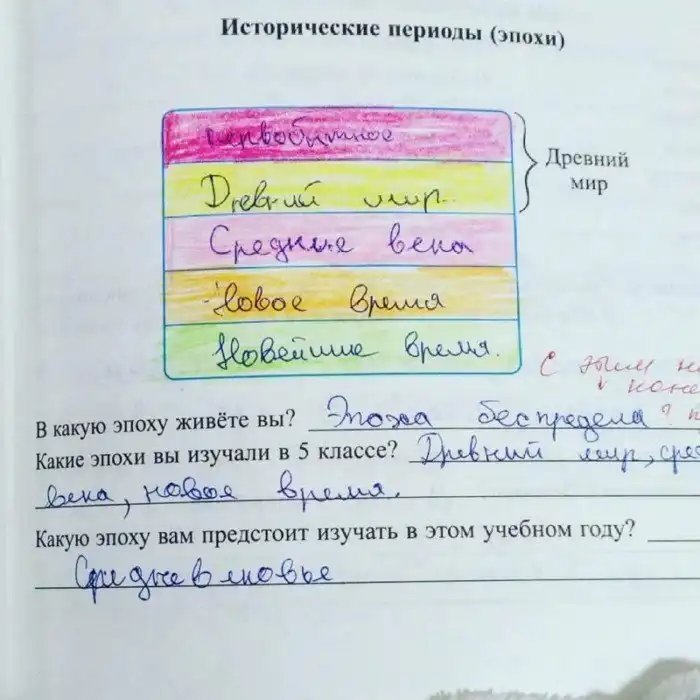 Исторические периоды (эпохи)
Первобытное
Древний мир.
Древний
мир
Средние века
Новое время
Новейшие время.
С этим
В какую эпоху живёте вы? Эпоха беспредела ?
Какие эпохи вы изучали в 5 классе? Древний мир, сре
века, новое время.
Какую эпоху вам предстоит изучать в этом учебном году?
Средневековье